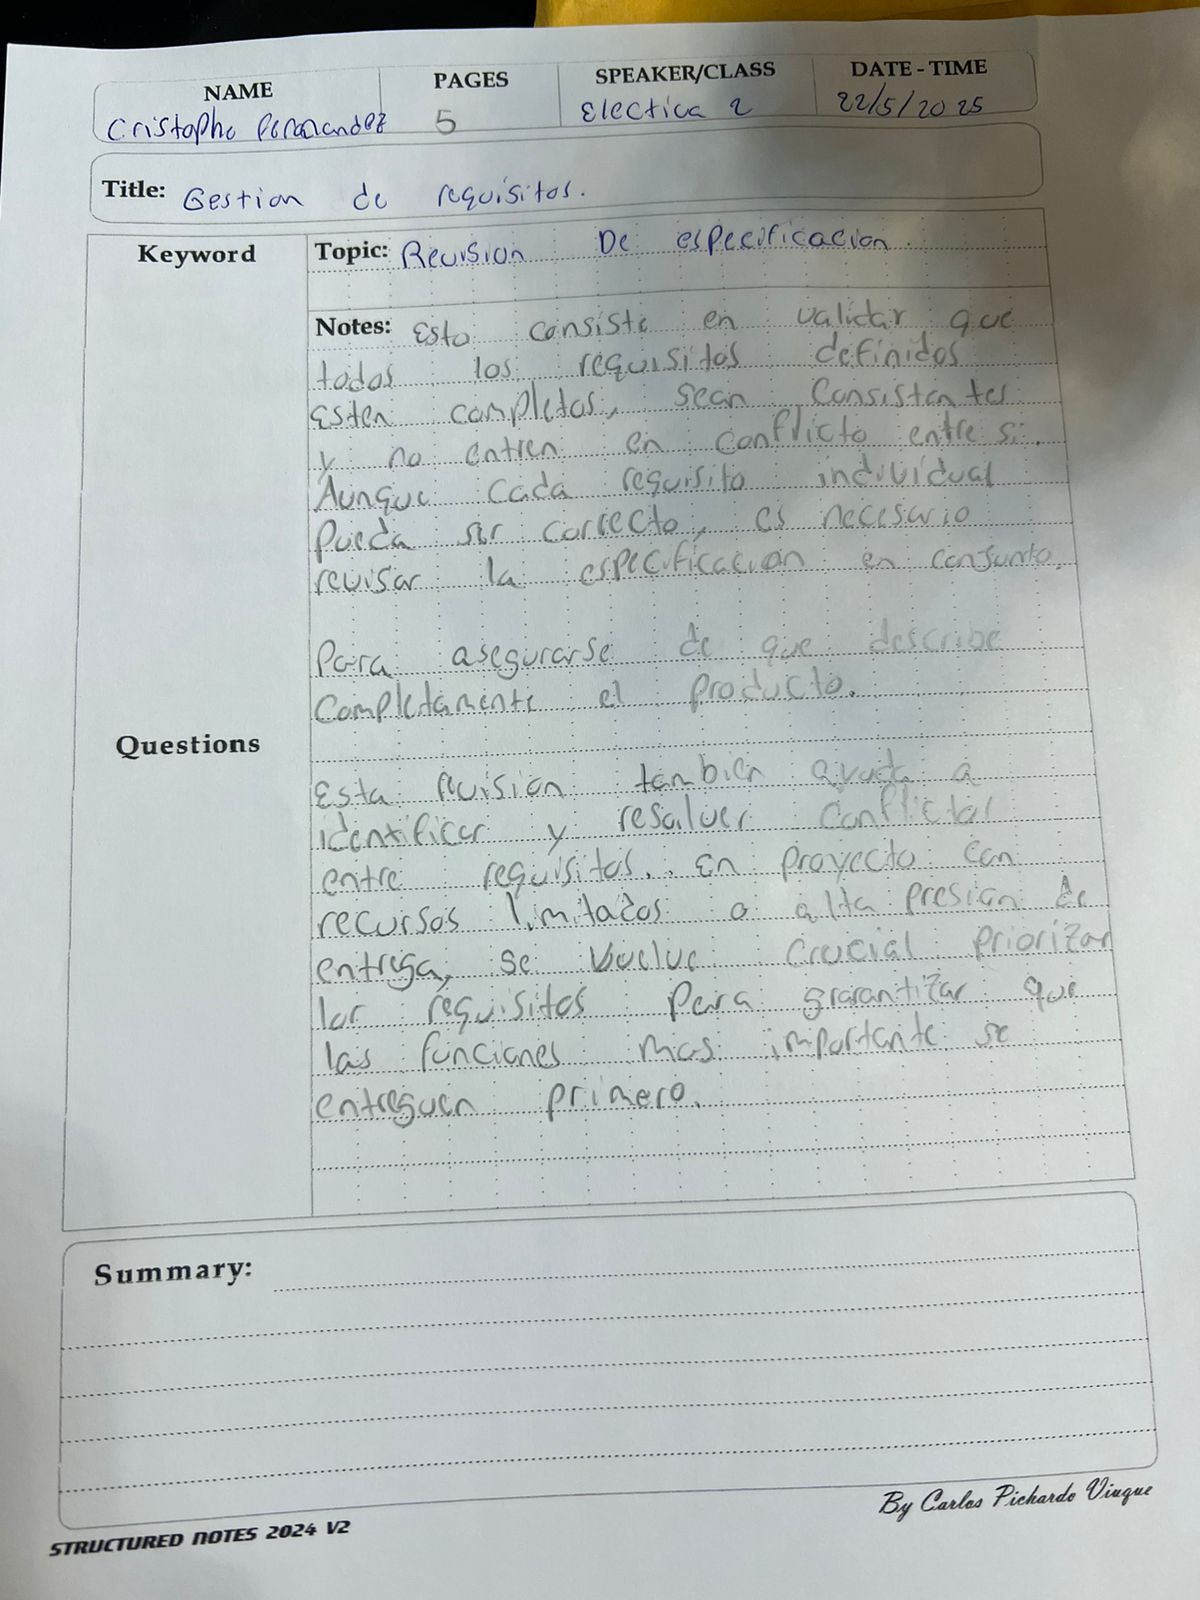 NAME PAGES SPEAKER/CLASS DATE - TIME
Cristophe Fernandez 5 Electiva 2 22/5/2025
Title: Gestion de requisitos.
Keyword
Topic: Revision De especificacion.
Notes: Esto consiste en validar que
todos los requisitos definidos
Esten completos, sean Consistentes
y no entren en conflicto entre si.
Aunque cada requisito individual
Pueda ser correcto, es necesario
revisar la especificacion en conjunto.
Para asegurarse de que describe
Completamente el producto.
Questions
Esta revision tambien ayuda a
identificar y resolver Conflictos
entre requisitos. En proyecto con
recursos limitados o alta presion de
entrega, se vuelve crucial priorizar
los requisitos para grarantizar que
las funciones mas importante se
entreguen primero.
Summary:
By Carlos Pichardo Viuque
STRUCTURED NOTES 2024 V2